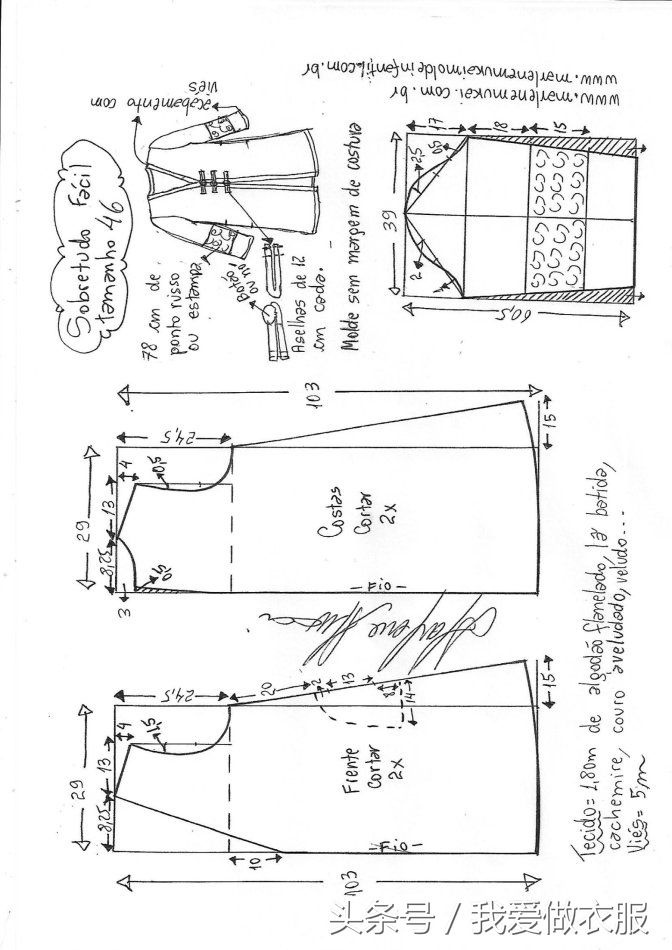 Sobretudo Fácil
tamanho 46
acabamento com
viés
78 cm de
ponto russo
ou estampa
Botão
ou nó
Aselhas de 12
cm cada.
Molde sem margem de costura
www.marlenemukai.com.br
www.marlenemukaimoldeinfantil.com.br
39
60,5
17
18
15
2,5
0,5
2
1
103
29
24,5
4
13
8,25
0,5
0,5
3
15
Costas
Cortar
2x
-Fio-
103
29
24,5
4
13
8,25
1,5
10
20
2
13
8
14
15
Frente
Cortar
2x
-Fio-
Tecido= 1,80m de algodão flanelado, lã batida,
cachemire, couro aveludado, veludo...
Viés= 5,m
头条号 / 我爱做衣服